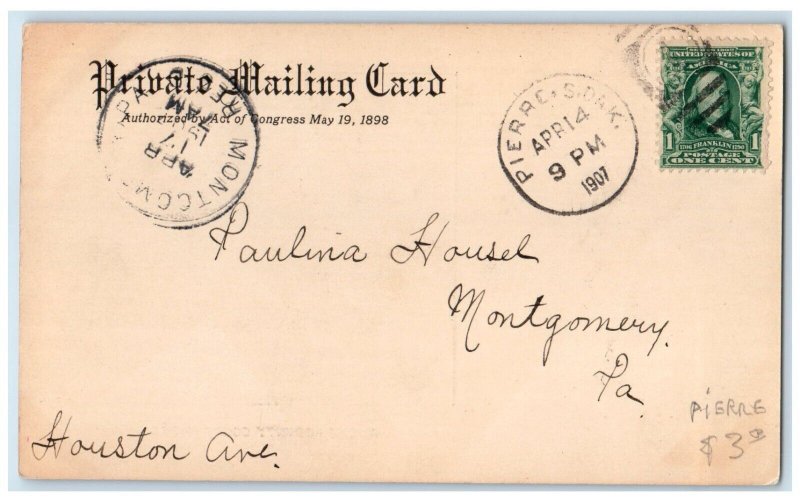 Private Mailing Card
Authorized by Act of Congress May 19, 1898
MONTGOM PA.
APR
17
AM
1907
REC'D
PIERRE, S. DAK.
APR 14
9 PM
1907
UNITED STATES OF
AMERICA
1 1706 FRANKLIN 1790 1
POSTAGE
ONE CENT
Paulina Housel
Montgomery.
Pa.
Houston Ave.
PIERRE
$3.00